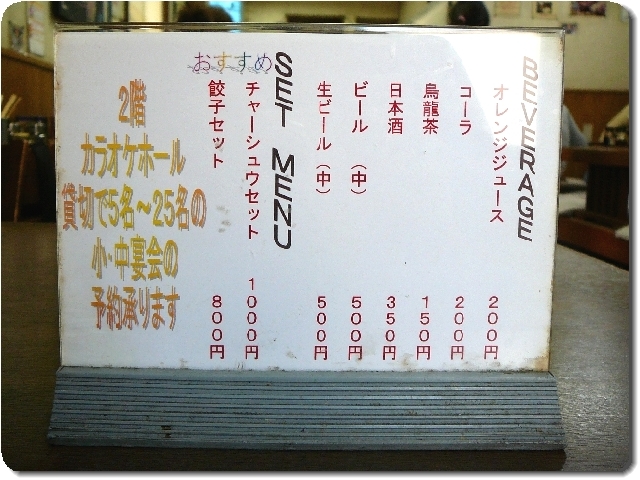 BEVERAGE
オレンジジュース 200円
コーラ 200円
烏龍茶 150円
日本酒 350円
ビール（中） 500円
生ビール（中） 500円
SET MENU
おすすめ
チャーシュウセット 1000円
餃子セット 800円
2階
カラオケホール
貸切で5名～25名の
小・中宴会の
予約承ります